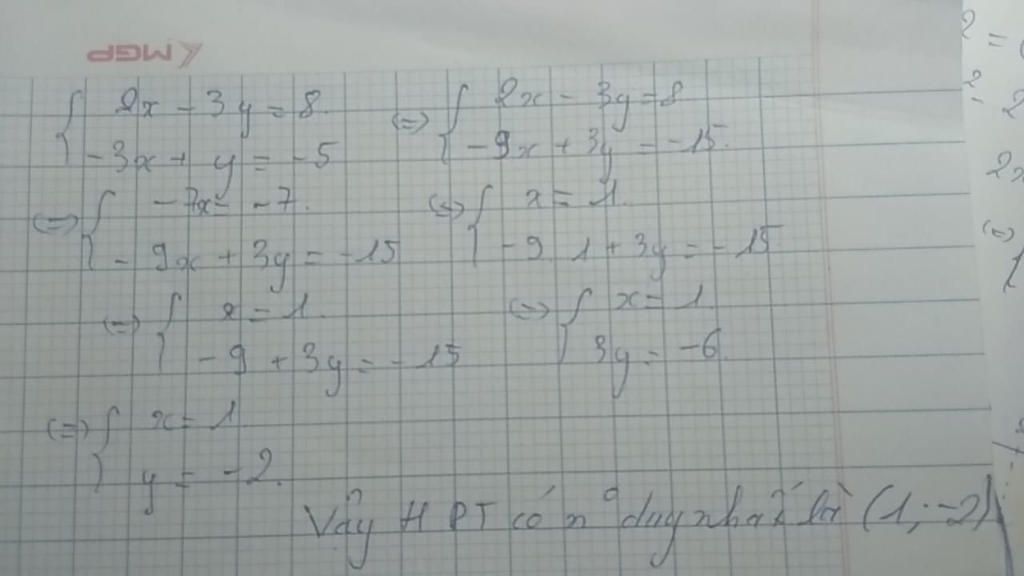 MGP
{ 2x - 3y = 8 (=) { 2x - 3y = 8
-3x + y = -5 -9x + 3y = -15
(=) { -7x = -7 (=) { x = 1
-9x + 3y = -15 -9 1 + 3y = -15
(=) { x = 1 (=) { x = 1
-9 + 3y = -15 3y = -6
(=) { x = 1
y = -2
Vậy HPT có nº duy nhất là (1; -2)
2 =
2
2x
(=) {